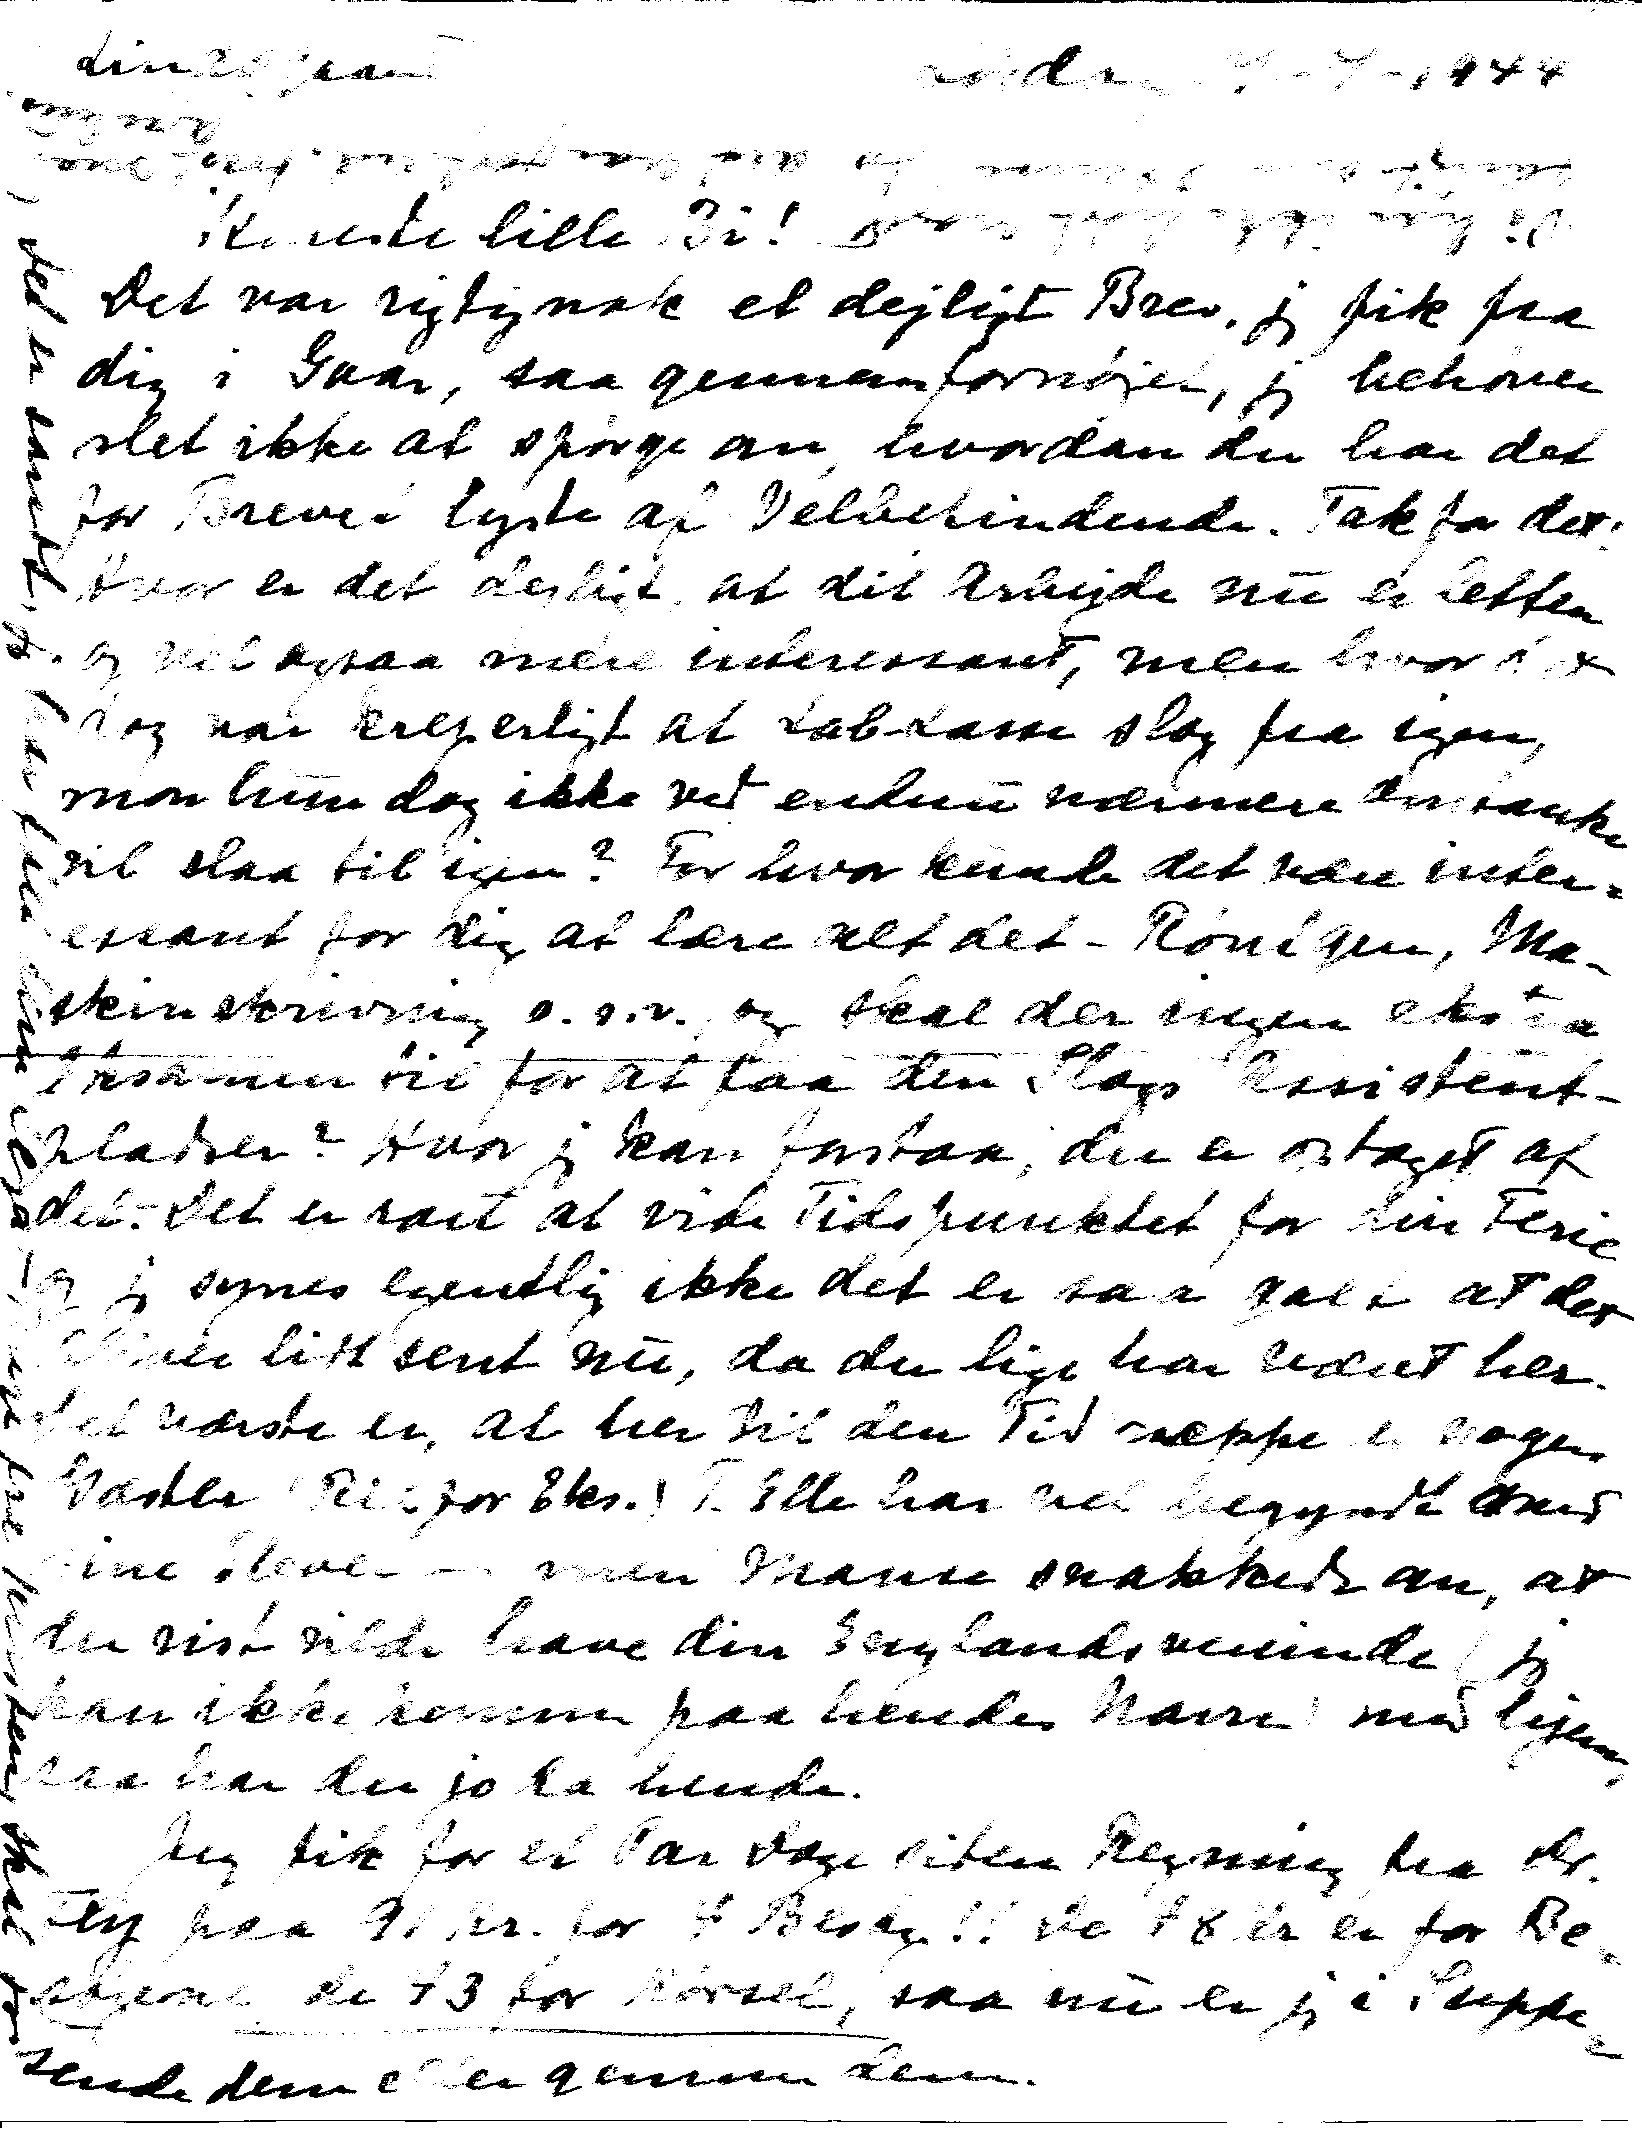 1944
Kæreste lille Bi!
Det var rigtignok et dejligt Brev, jeg fik fra
dig i Gaar, saa gennemfornøjet, jeg behøver
slet ikke at spørge om, hvordan du har det
for Brevet lyste af Velbefindende. Tak for det!
Hvor er det dejligt, at dit Arbejde nu er lettere
og vel ogsaa mere interessant, men hvor det
dog var ærgerligt at Lab-Damen slog fra igen,
mon hun dog ikke ved endnu nærmere Omtanke
vil slaa til igen? For hvor kunde det være inter-
essant for dig at lære alt det - Röntgen, Ma-
skinskrivning o.s.v., og skal der ingen ekstra
Eksamen til for at faa den Slags Assistent-
pladser? Hvor jeg kan forstaa, du er optaget af
det. Det er rart at vide Tidspunktet for din Ferie
og jeg synes egentlig ikke det er saa galt at det
bliver lidt sent nu, da du lige har været her.
Det værste er, at her til den Tid næppe er nogen
Gæster for Eks.) T. Elle har vel begyndt med
sine Elever men Manse snakkede om, at
du vist vilde have din Englandsveninde (jeg
kan ikke komme paa hendes Navn) med ligesaa
saa har du jo da hende.
Jeg fik for et Par Dage siden Regning fra Dr.
paa 91 Kr. for 4 Besøg!! De 48 Kr er for Be-
søgene de 43 for Kørsel, saa nu er jeg i Suppe-
Det er sandt,
skal jeg
sende dem eller gemme dem.